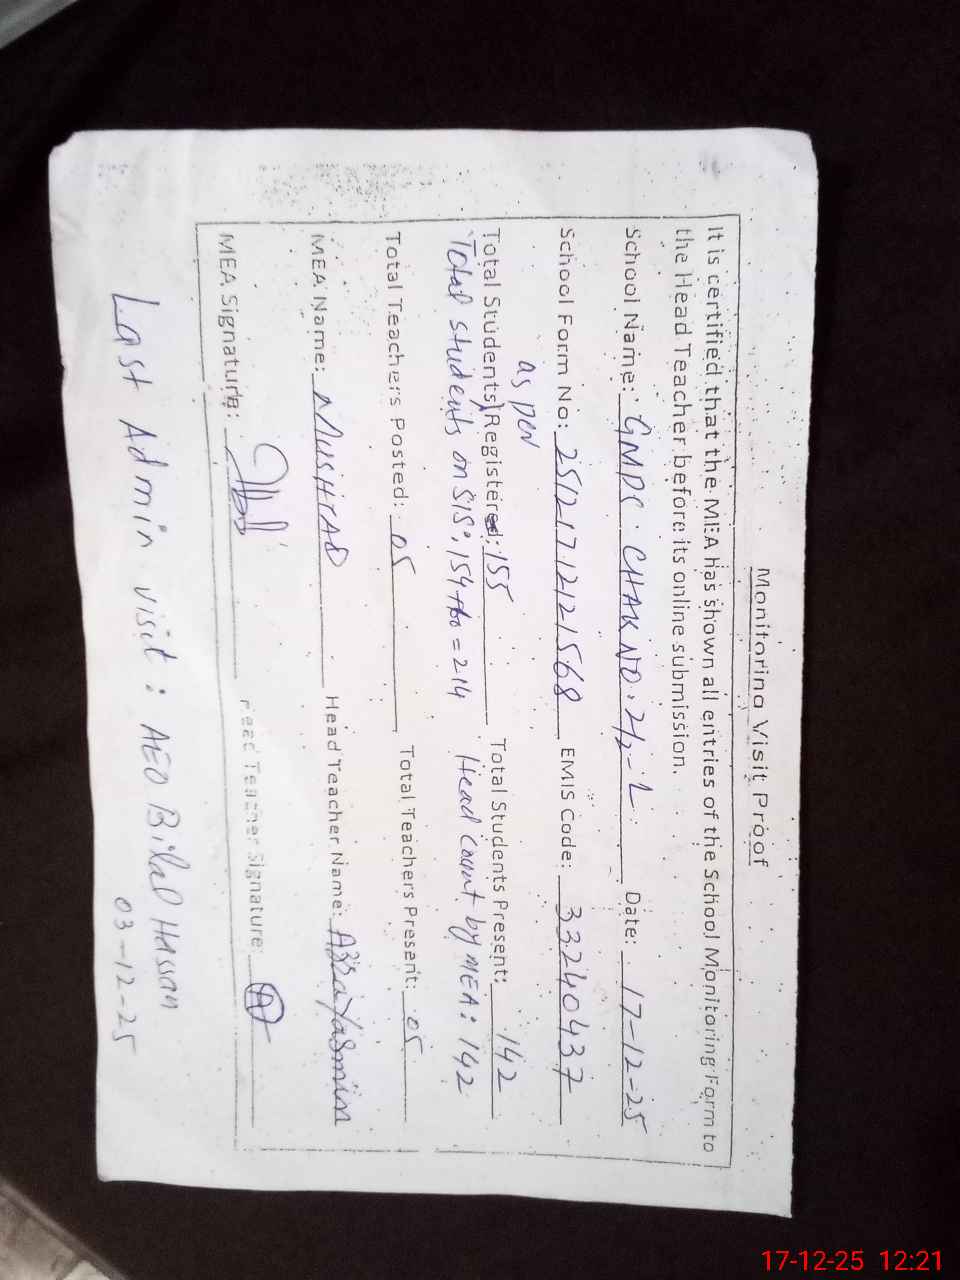 Monitoring Visit Proof
It is certified that the MEA has shown all entries of the School Monitoring Form to
the Head Teacher before its online submission.
School Name: GMPS CHAK NO. 2/2-L Date: 17-12-25
School Form No: 25121712121568 EMIS Code: 33240437
as per
Total Students Registered: 155 Total Students Present: 142
Total students on SIS: 154+60=214 Head count by MEA: 142
Total Teachers Posted: 05 Total Teachers Present: 05
MEA Name: MUSHTAQ Head Teacher Name: Azra Yasmin
MEA Signature: Head Teacher Signature:
Last Admin visit: AEO Bilal Hassan
03-12-25
17-12-25 12:21